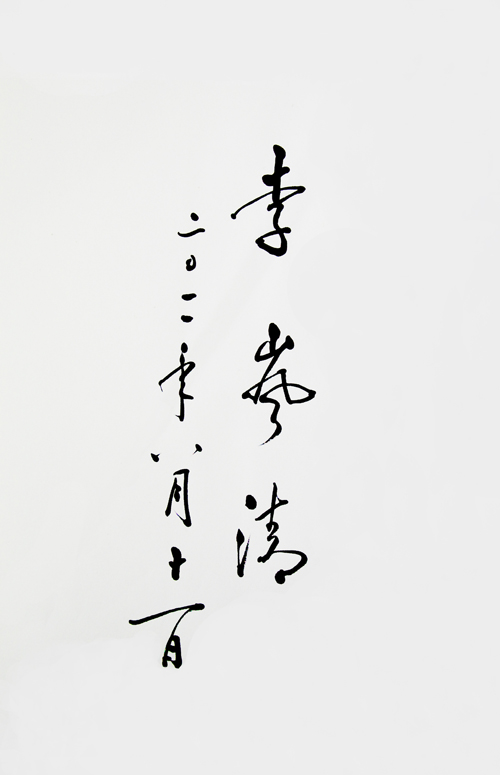 李岚清
二〇一一年八月十一日